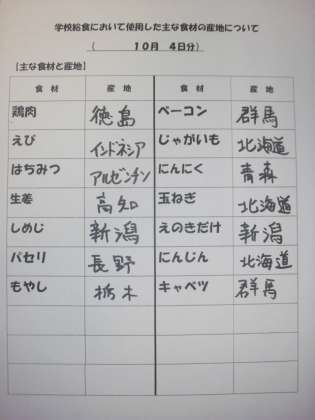 学校給食において使用した主な食材の産地について
( 10月 4日分)
[主な食材と産地]
食 材 産 地 食 材 産 地
鶏肉 徳島 ベーコン 群馬
えび インドネシア じゃがいも 北海道
はちみつ アルゼンチン にんにく 青森
生姜 高知 玉ねぎ 北海道
しめじ 新潟 えのきだけ 新潟
パセリ 長野 にんじん 北海道
もやし 栃木 キャベツ 群馬